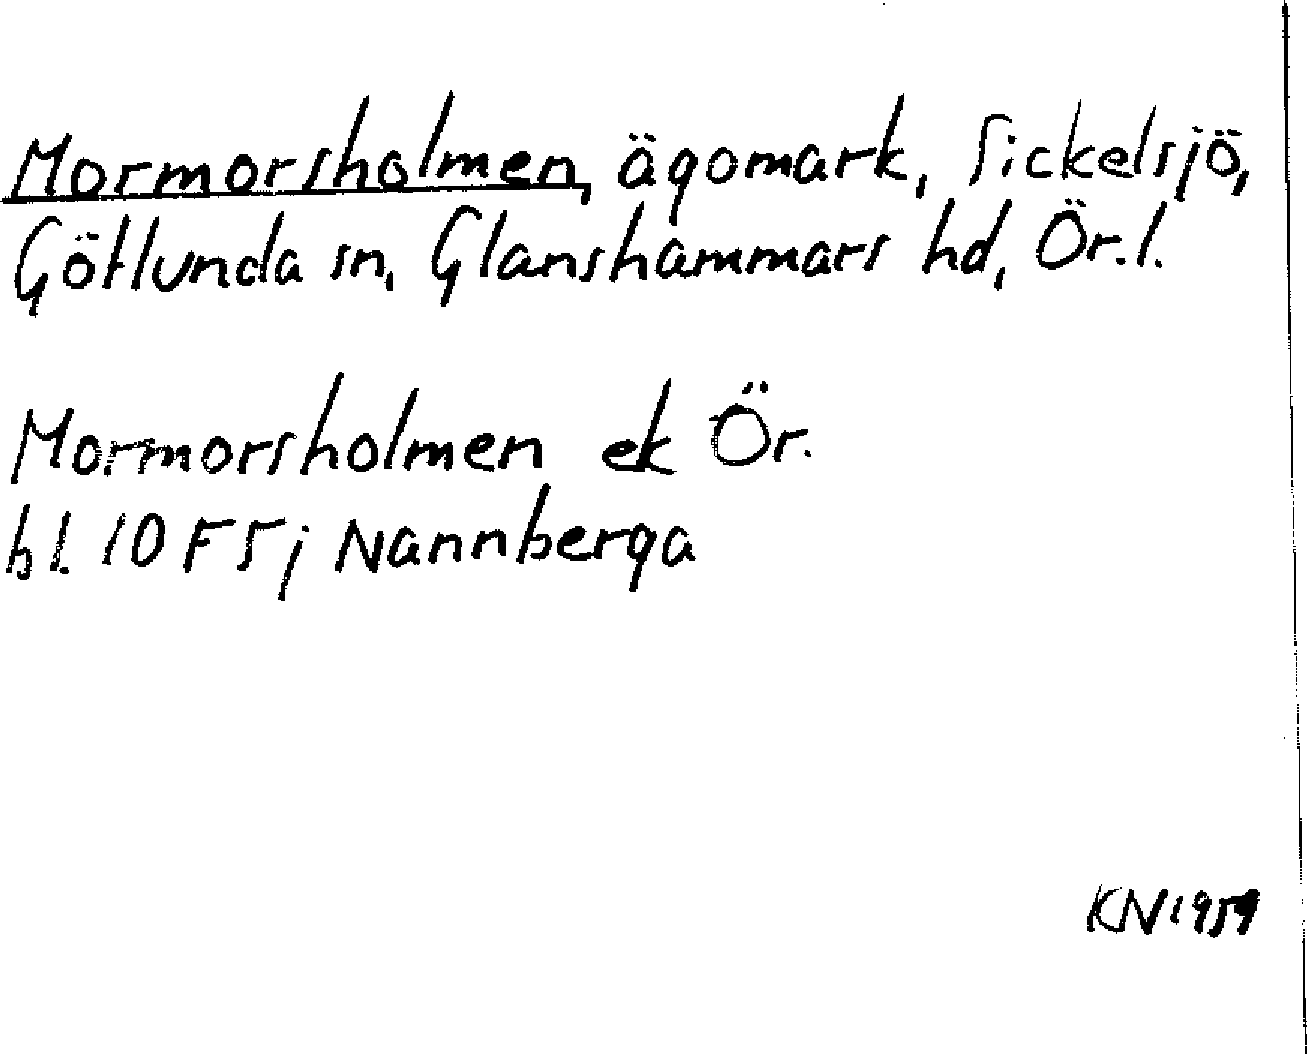 Mormorsholmen, ägomark, Sickelsjö,
Götlunda sn, Glanshammars hd, Ör. l.
Mormorsholmen ek Ör.
bl. 10F5j Nannberga
KN 1959